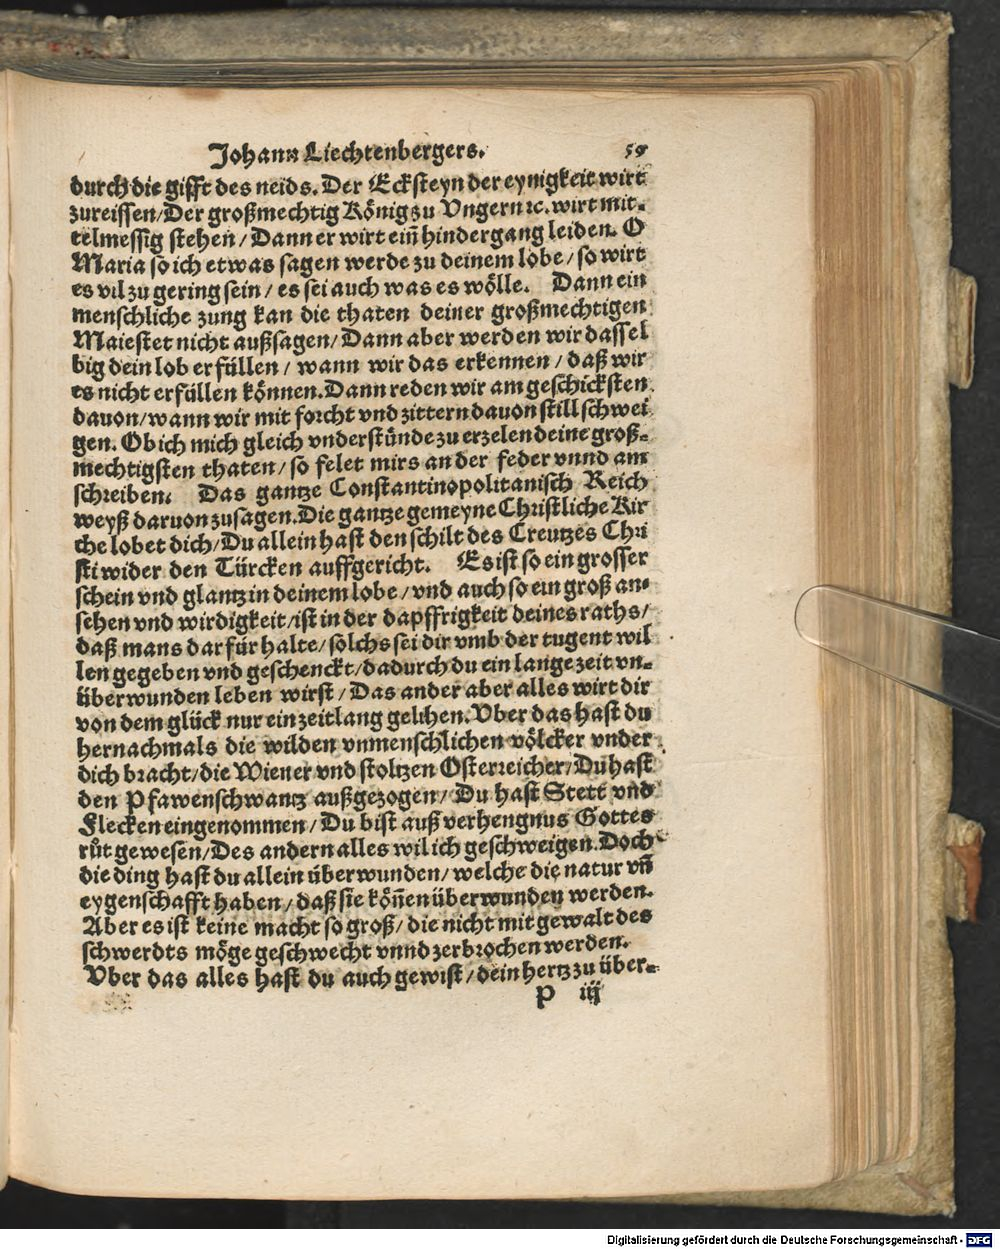 Johann Liechtenbergers. 59
durch die gifft des neids. Der Eckſteyn der eynigkeit wirt
zureiſſen/Der großmechtig König zu Vngern ꝛc. wirt mit-
telmeſſig ſtehen/Dann er wirt ein̄ hindergang leiden. O
Maria ſo ich etwas ſagen werde zu deinem lobe/ſo wirt
es vil zu gering ſein/es ſei auch was es wölle. Dann ein
menſchliche zung kan die thaten deiner großmechtigen
Maieſtet nicht außſagen/Dann aber werden wir daſſel
big dein lob erfüllen/wann wir das erkennen/daß wir
es nicht erfüllen können. Dann reden wir am geſchickſten
dauon/wann wir mit forcht vnd zittern dauon ſtill ſchwei
gen. Ob ich mich gleich vnderſtünde zu erzelen deine groß-
mechtigſten thaten/ſo felet mirs an der feder vnnd am
ſchreiben. Das gantze Conſtantinopolitaniſch Reich
weyß daruon zu ſagen. Die gantze gemeyne Chriſtliche Kir
che lobet dich/Du allein haſt den ſchilt des Creutzes Chri
ſti wider den Türcken auffgericht. Es iſt ſo ein groſſer
ſchein vnd glantz in deinem lobe/vnd auch ſo ein groß an-
ſehen vnd wirdigkeit/iſt in der dapffrigkeit deines raths/
daß mans darfür halte/ſolchs ſei dir vmb der tugent wil
len gegeben vnd geſchenckt/dadurch du ein lange zeit vn-
überwunden leben wirſt/Das ander aber alles wirt dir
von dem glück nur ein zeitlang gelihen. Vber das haſt du
hernachmals die wilden vnmenſchlichen völcker vnder
dich bracht/die Wiener vnd ſtoltzen Oſterreicher/Du haſt
den Pfawenſchwantz außgezogen/Du haſt Stett vnd
Flecken eingenommen/Du biſt auß verhengnus Gottes
růt geweſen/Des andern alles wil ich geſchweigen. Doch
die ding haſt du allein überwunden/welche die natur vn̄
eygenſchafft haben/daß ſie kön̄en überwunden werden.
Aber es iſt keine macht ſo groß/die nicht mit gewalt des
ſchwerdts möge geſchwecht vnnd zerbrochen werden.
Vber das alles haſt du auch gewiſt/dein hertz zu über-
P iij
Digitalisierung gefördert durch die Deutsche Forschungsgemeinschaft - DFG